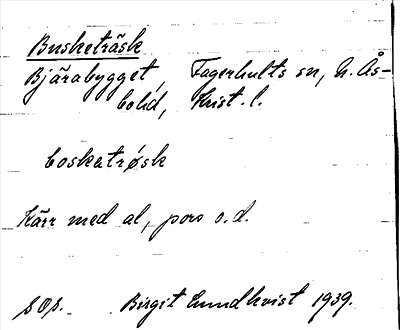 Busketräsk
Bjärabygget, Fagerhults sn, N. Ås-
bohd, Krist. l.
boskatrøsk
Kärr med al, pors o.d.
SOS. Birgit Lundkvist 1939.